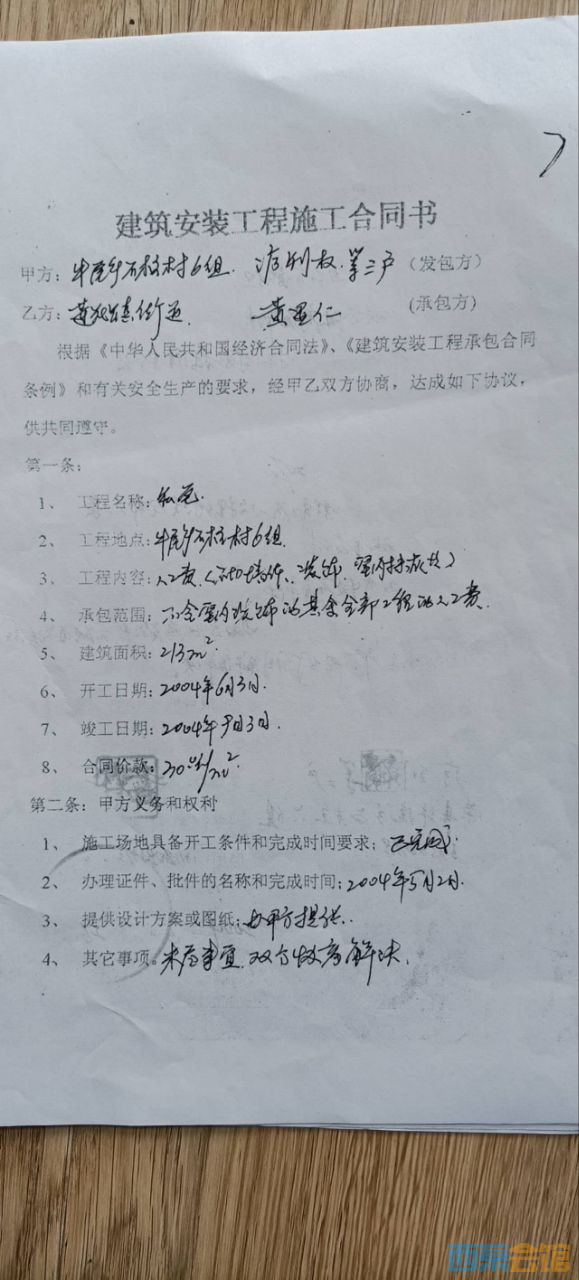 建筑安装工程施工合同书
甲方：牛尾乡石柱村6组 第三户（发包方）
乙方： 黄显仁 （承包方）
根据《中华人民共和国经济合同法》、《建筑安装工程承包合同
条例》和有关安全生产的要求，经甲乙双方协商，达成如下协议，
供共同遵守。
第一条：
1、 工程名称：
2、 工程地点：牛尾乡石柱村6组
3、 工程内容：人工费（ 装饰、室内
4、 承包范围：不含室内装饰的其余全部工程的人工费.
5、 建筑面积：213m²
6、 开工日期：2004年6月3日.
7、 竣工日期：2004年9月3日.
8、 合同价款： /m²
第二条：甲方义务和权利
1、 施工场地具备开工条件和完成时间要求；已完成
2、 办理证件、批件的名称和完成时间；2004年5月2日.
3、 提供设计方案或图纸；由甲方提供.
4、 其它事项。未尽事宜.双方协商解决.
西祠会馆